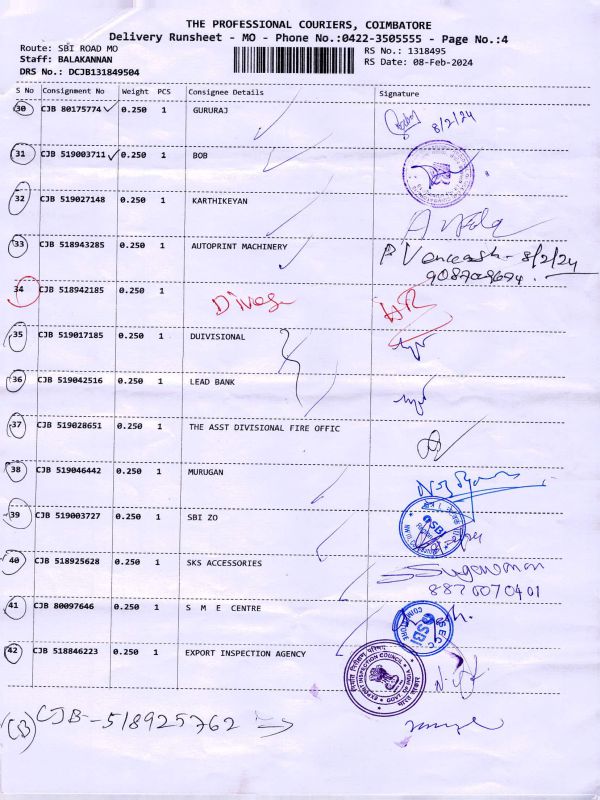 THE PROFESSIONAL COURIERS, COIMBATORE
Delivery Runsheet - MO - Phone No.:0422-3505555 - Page No.:4
Route: SBI ROAD MO
Staff: BALAKANNAN
DRS No.: DCJB131849504
RS No.: 1318495
RS Date: 08-Feb-2024
S No Consignment No Weight PCS Consignee Details Signature
30 CJB 80175774 0.250 1 GURURAJ 8/2/24
31 CJB 519003711 0.250 1 BOB
32 CJB 519027148 0.250 1 KARTHIKEYAN
33 CJB 518943285 0.250 1 AUTOPRINT MACHINERY 8/2/24
34 CJB 518942185 0.250 1
35 CJB 519017185 0.250 1 DUIVISIONAL
36 CJB 519042516 0.250 1 LEAD BANK
37 CJB 519028651 0.250 1 THE ASST DIVISIONAL FIRE OFFIC
38 CJB 519046442 0.250 1 MURUGAN
39 CJB 519003727 0.250 1 SBI ZO SBI
40 CJB 518925628 0.250 1 SKS ACCESSORIES
8870070401
41 CJB 80097646 0.250 1 S M E CENTRE SBI SECC
42 CJB 518846223 0.250 1 EXPORT INSPECTION AGENCY
EXPORT INSPECTION COUNCIL
CJB-518925762